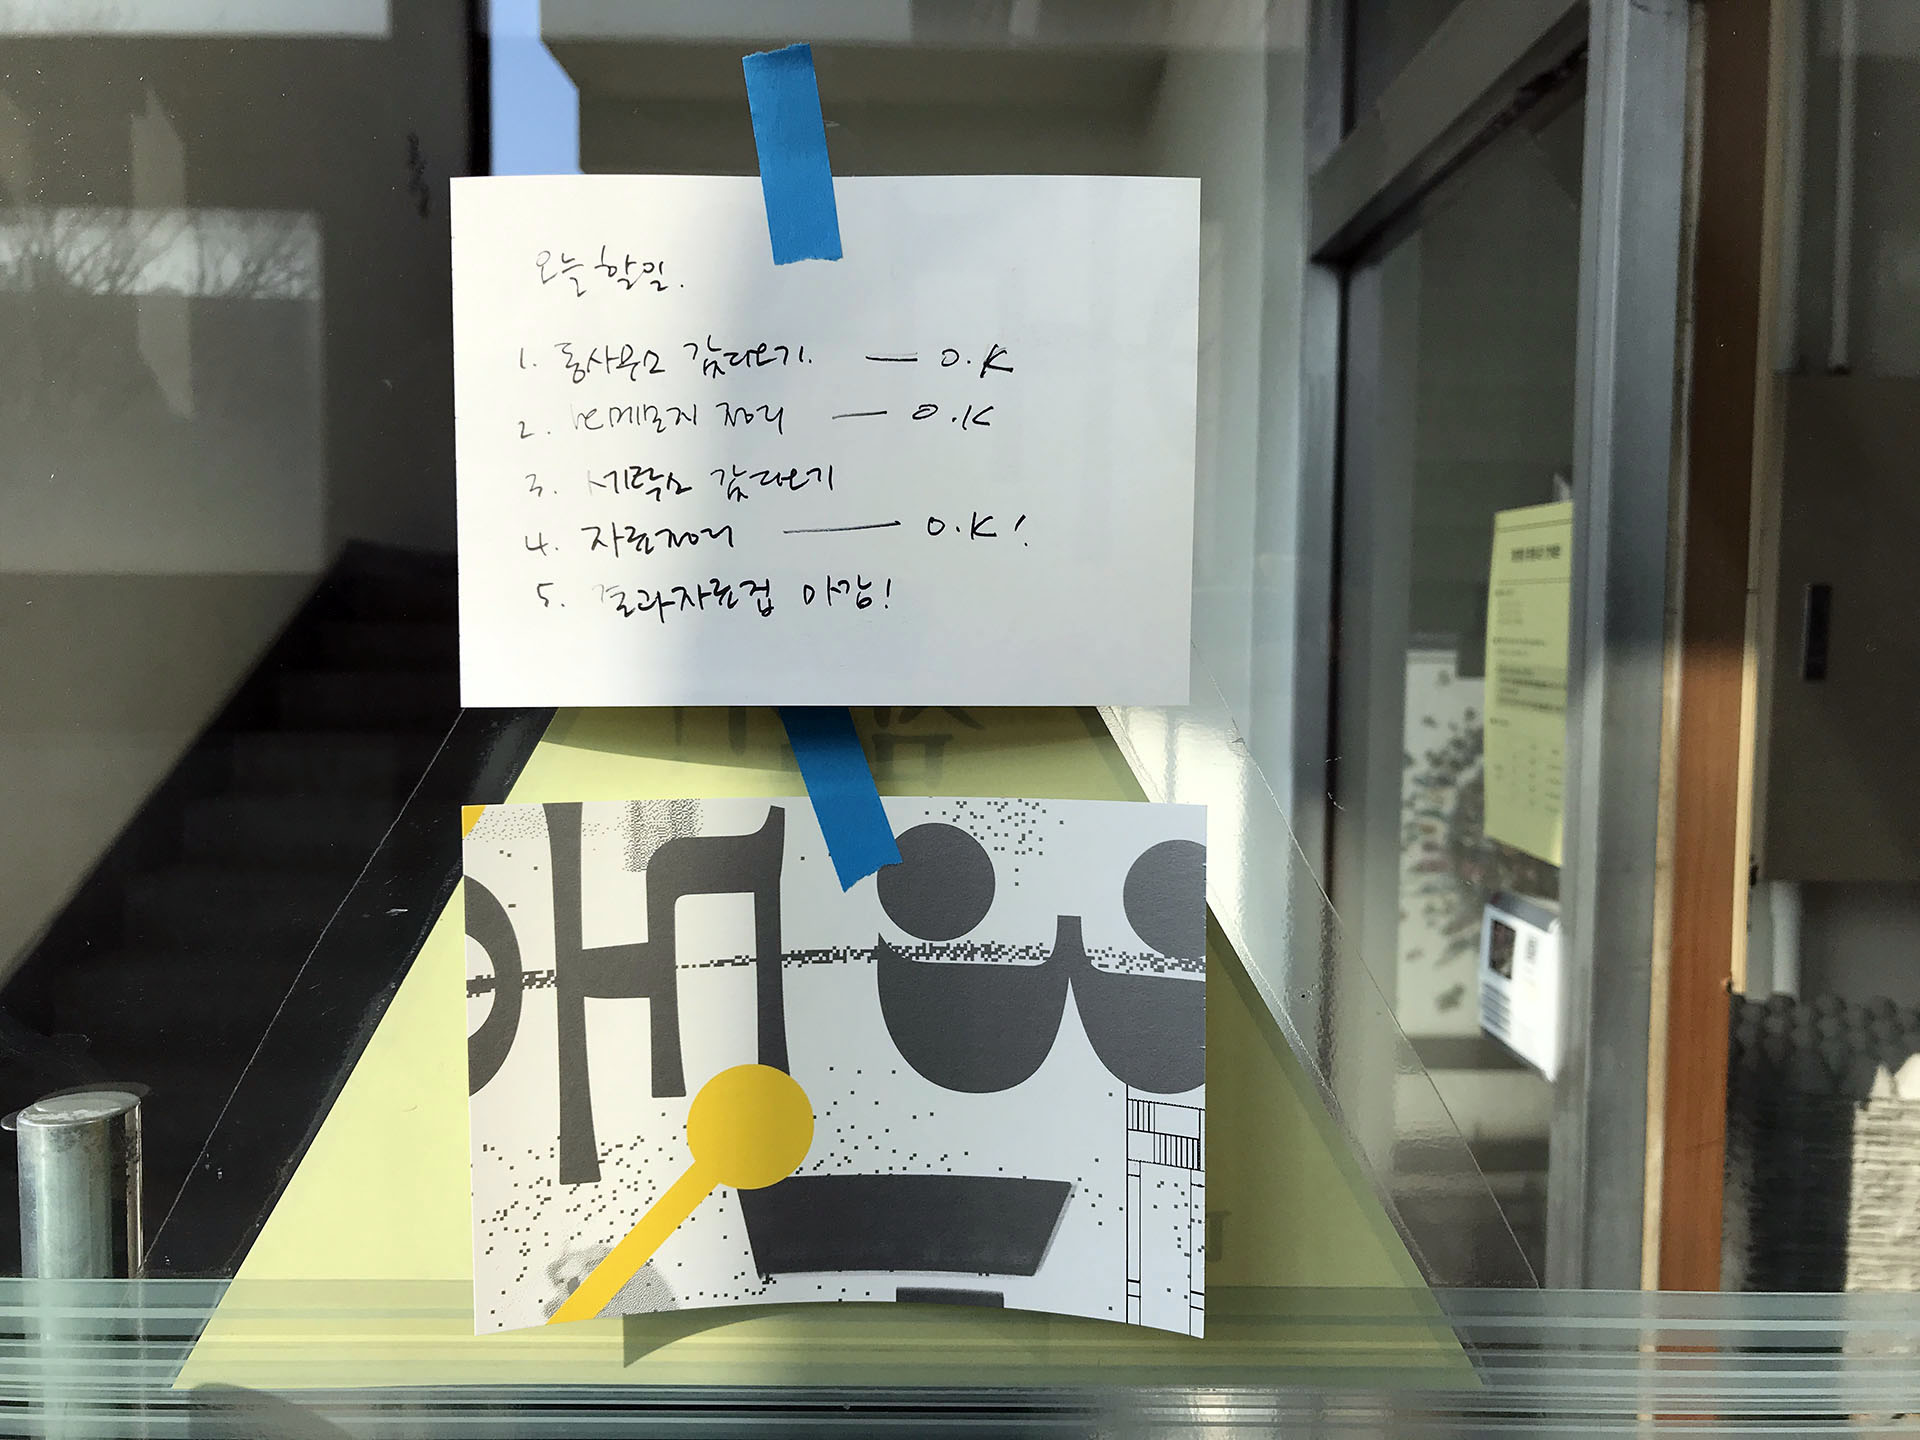 오늘 할일.
1. 동사무소 갔다오기. — O.K
2. 메모지 정리 — O.K
3. 세탁소 갔다오기
4. 자료정리 — O.K!
5. 결과자료집 마감!